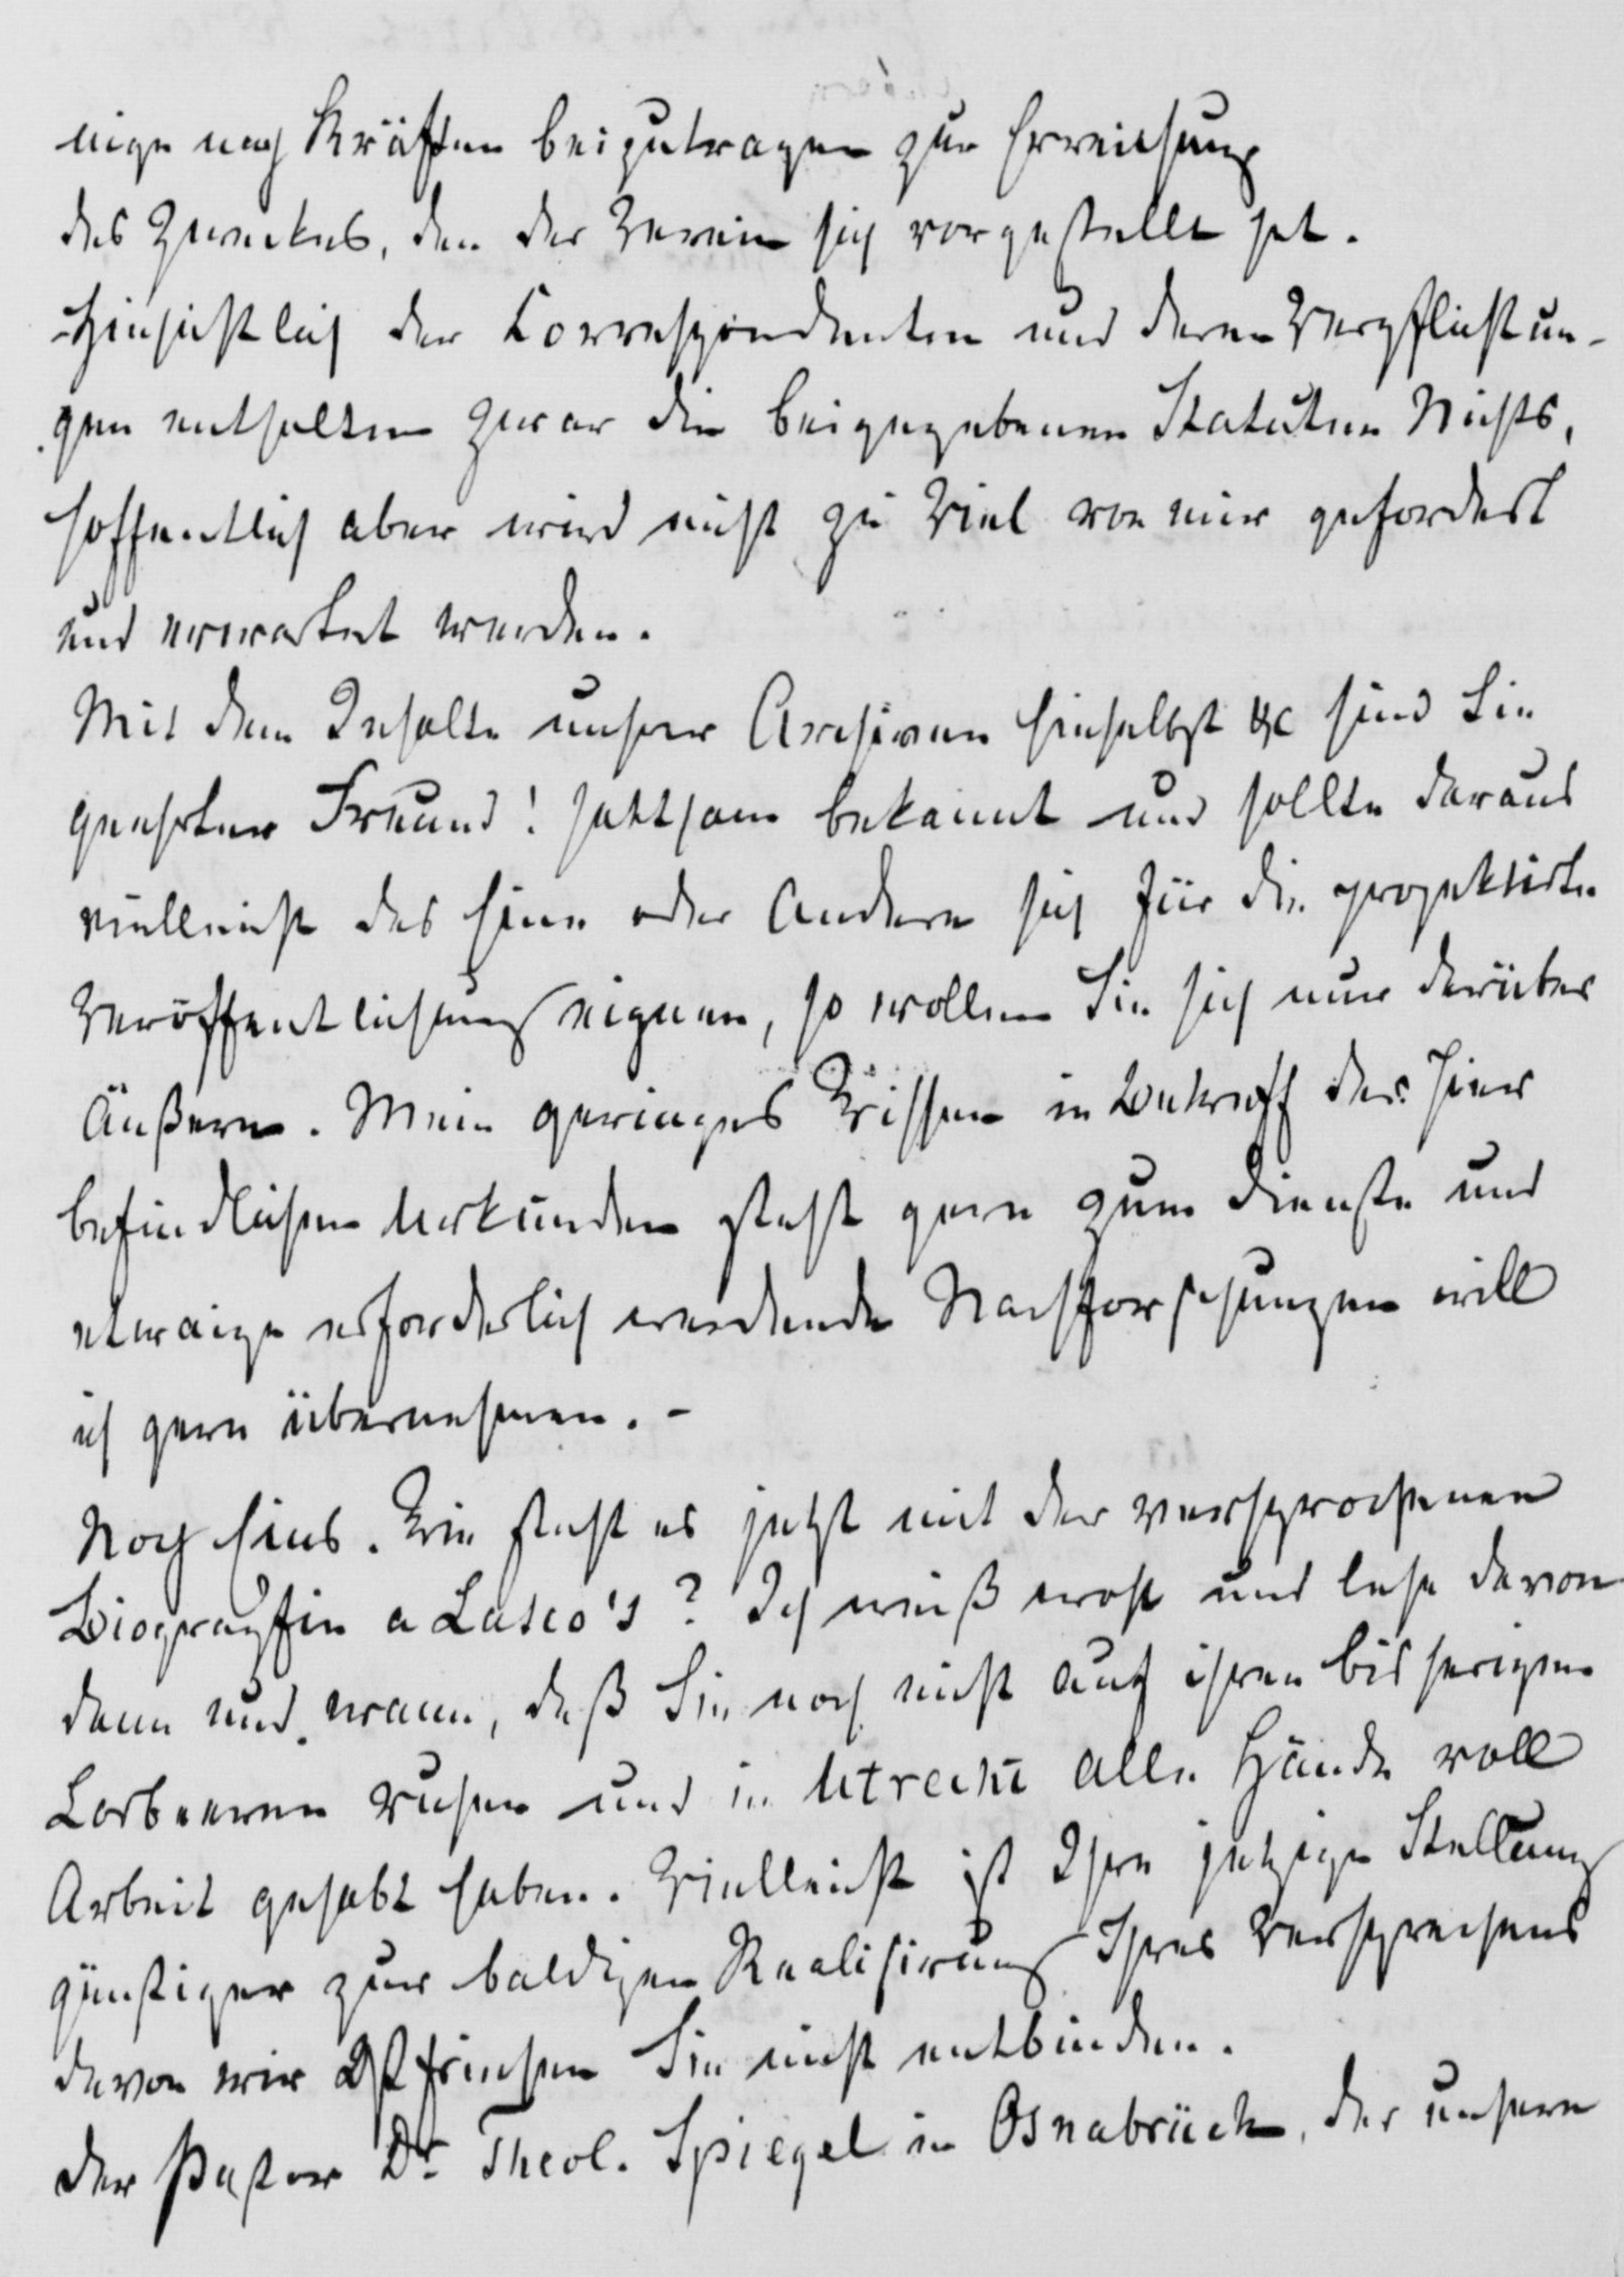 nige nach Kräften beizutragen zur Erreichung
des Zweckes, den der Verein sich vorgestellt hat.
Hinsichtlich der Correspondenten und deren Verpflichtun-
gen enthalten zwar die beigegebenen Statuten Nichts,
hoffentlich aber wird nicht zu Viel von mir gefordert
und erwartet werden.
Mit dem Inhalte unserer Archiven hieselbst &c sind Sie
geehrter Freund! sattsam bekannt und sollte daraus
vielleicht das Eine oder Andere sich für die projektirte
Veröffentlichung eignen, so wollen Sie sich nur darüber
äußern. Mein geringes Wissen in Betreff der hier
befindlichen Urkunden steht gern zum Dienste und
etwaige erforderlich werdende Nachforschungen will
ich gern übernehmen. -
Noch Eins. Wie steht es jetzt mit der versprochenen
Biographie a Lasco's? Ich weiß wohl und lese davon
dann und wann, daß Sie noch nicht auf ihren bisherigen
Lorbeeren ruhen und in Utrecht alle Hände voll
Arbeit gehabt haben. Vielleicht ist Ihre jetzige Stellung
günstiger zur baldigen Realisirung Ihres Versprechens
davon wir Ostfriesen Sie nicht entbinden.
Der Pastor Dr Theol. Spiegel in Osnabrück, der unsern